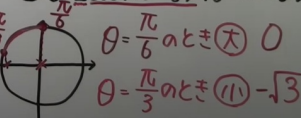 π/6
θ = π/6 のとき 大 0
θ = π/3 のとき 小 -√3